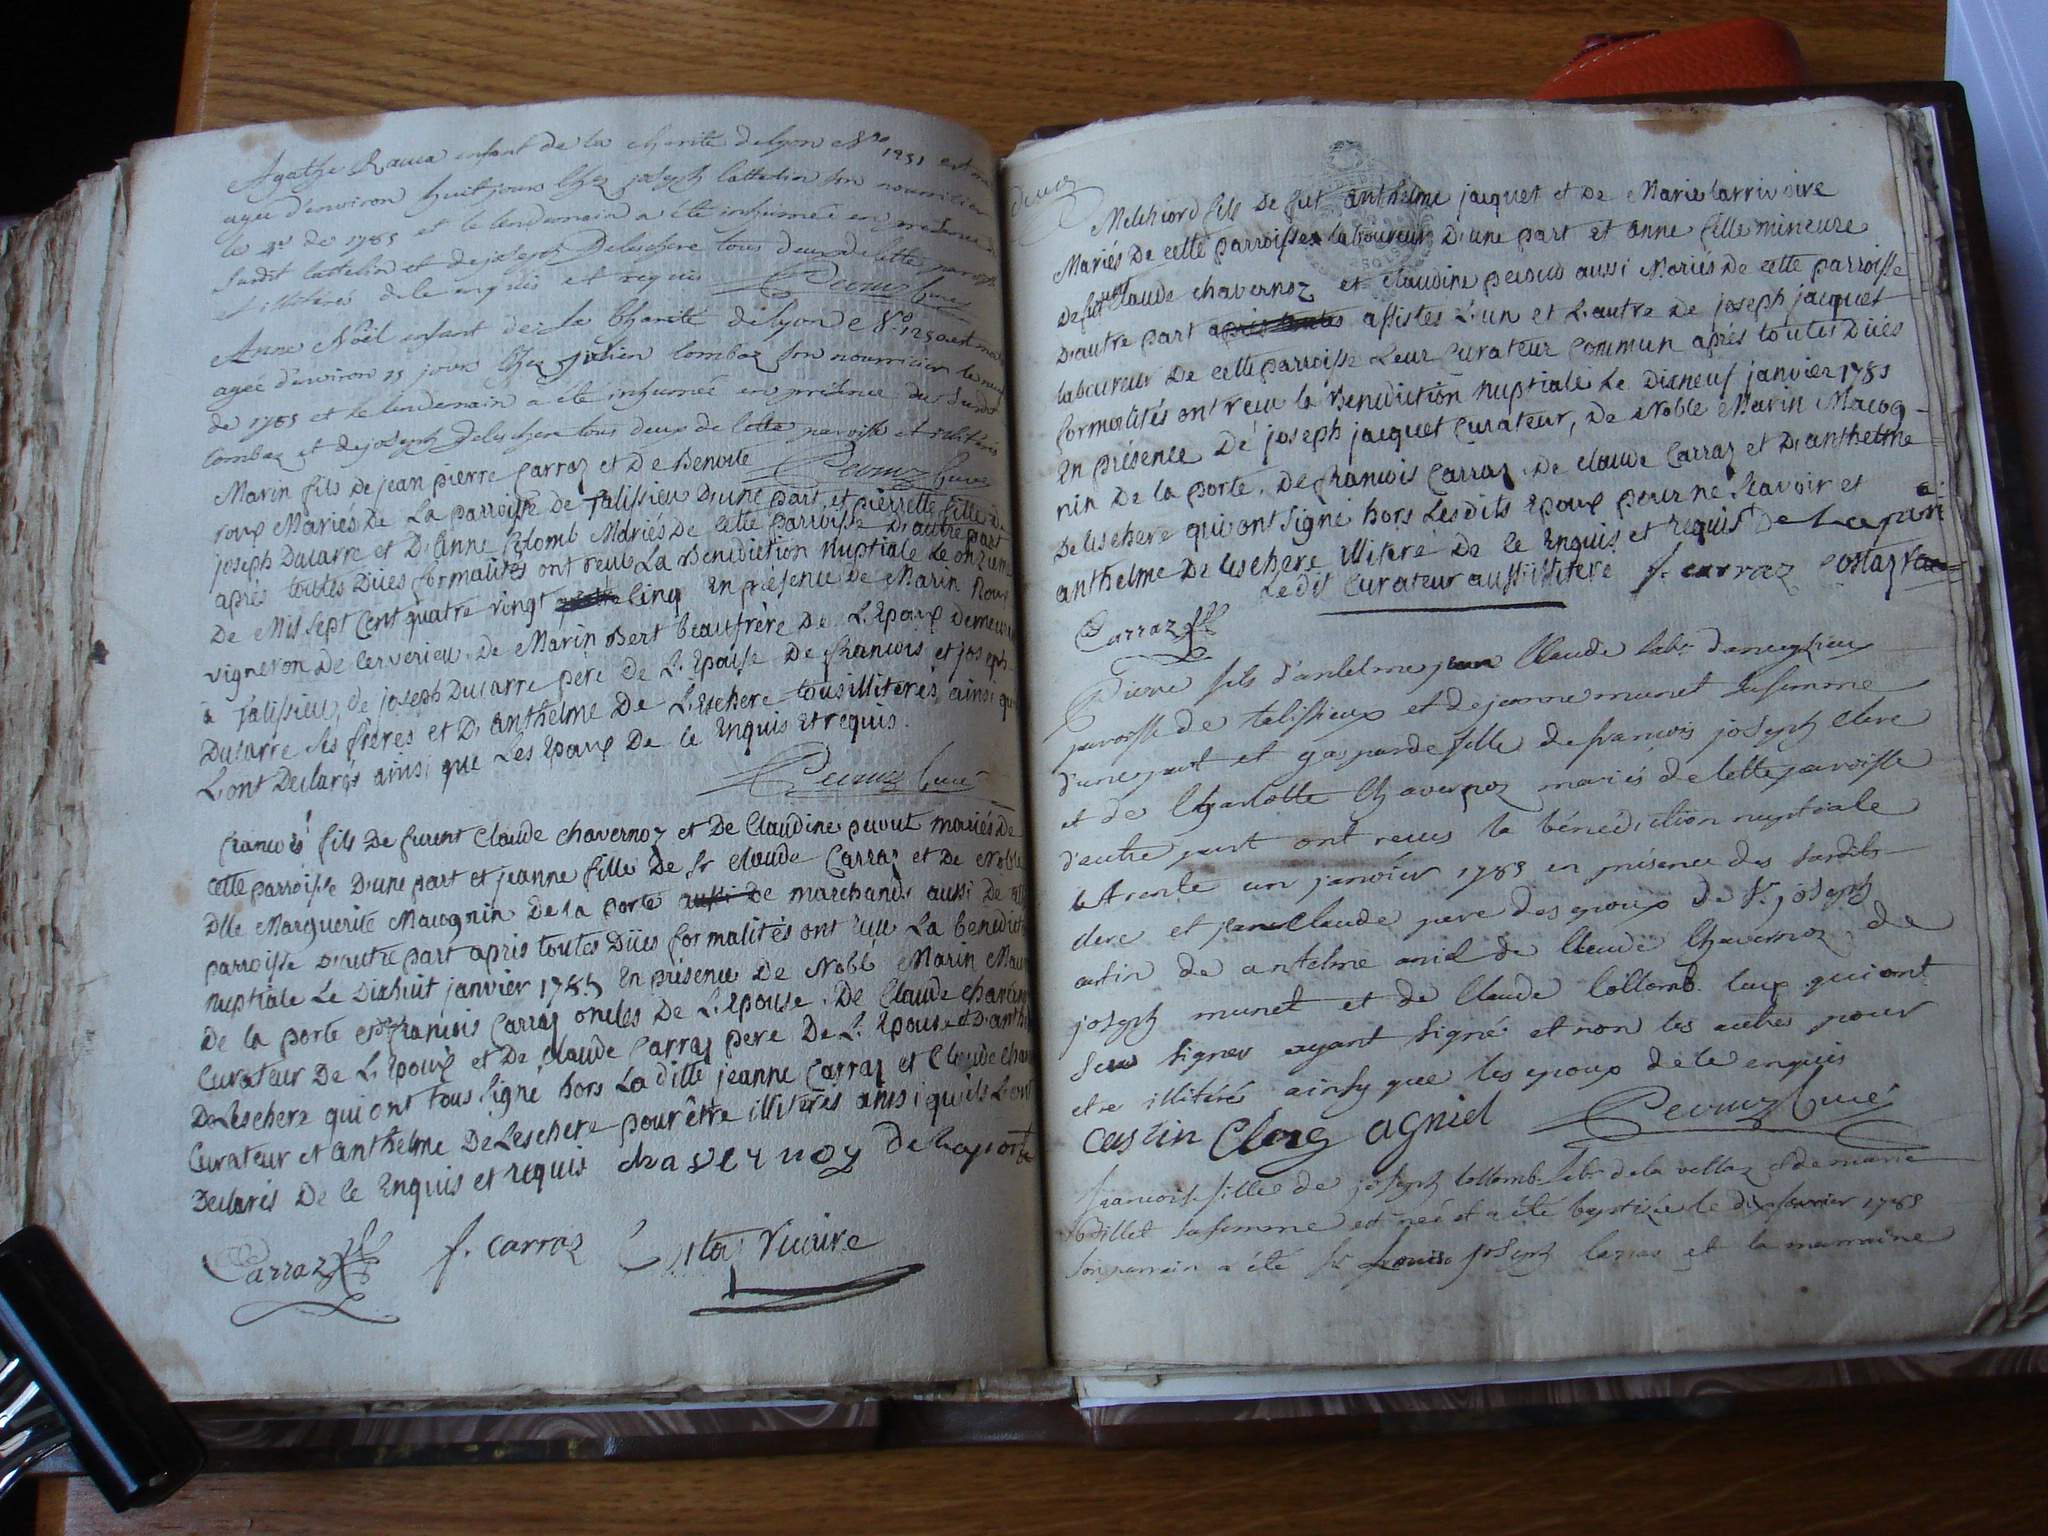 Agathe enfant de la charité de lyon N° 1251 est
agée d'environ huit jours chez joseph lattelin son nourricier
le de 1785 et le lendemain a été inhumée en présence
susdit lattelin et de joseph Deleschere tous deux de cette paroisse
et illitérés de ce enquis et requis Curé
Anne Noël enfant de la Charité de lyon N° est
agée d'environ 15 jours chez julien lombaz son nourricier le
de 1785 et le lendemain a été inhumée en présence du Susdit
lombaz et de joseph Deleschere tous deux de cette paroisse et illitérés
Curé
Marin fils de jean pierre Carraz et De Benoite
roux Mariés De La parroisse de Talissieu D'une part, et pierrette fille de
joseph Ducarre et D'Anne Colomb Mariés De cette Parroisse D'autre part
après toutes Dües formalités ont reçu La Benediction Nuptiale Le onzieme
De Mil Sept Cent quatre vingt Cinq En présence de Marin Roux
vigneron De Cerverieu, De Marin Bert beaufrère De L'Epoux demeurant
a Talissieu, de joseph Ducarre père De L'Epouse De francois et joseph
Ducarre ses frères et D'anthelme De Leschere tous illiteres ainsi qu
L'ont Declarés ainsi que Les Epoux De ce Enquis et requis.
Curé
francois fils De furent Claude chavernoz et De Claudine mariés De
cette parroisse D'une part et jeanne fille De Sr claude Carraz et De Noble
Dlle Marguerite Macognin De la porte De marchands aussi De
parroisse D'autre part après toutes Dües formalités ont reçu La benedict
Nuptiale Le Dixhuit janvier 1785 En présence De Noble Marin
De la porte francois Carraz oncles De L'Epouse, De Claude chavern
Curateur De L'Epoux et De Claude Carraz pere De L'Epouse et D'anth
De Leschere qui ont Tous Signé hors La ditte jeanne Carraz et Claude chav
Curateur et anthelme De Leschere pour être illiterés ainsi qu'ils L'ont
Declarés De ce Enquis et requis chavernoz De Laporte
Carraz f. carraz Costaz Vicaire
deux
Melchiord fils De fut anthelme jacquet et De Marie Larrivoire
Mariés De cette parroisse laboureur D'une part et anne fille mineure
De fut Claude chavernoz et Claudine aussi Mariés De cette parroisse
D'autre part assistés L'un et L'autre de joseph jacquet
laboureur De cette parroisse Leur Curateur Commun après toutes Dües
formalités ont reçu la Benediction Nuptiale Le Dixneuf janvier 1785
En présence De joseph jacquet Curateur, De Noble Marin Macog-
nin De la porte, De francois Carraz, De claude Carraz et D'anthelme
De leschere qui ont Signé hors Lesdits Epoux pour ne Scavoir et
anthelme De leschere illiteré De ce Enquis et requis De Laporte
Ledit Curateur aussi illiteré f. carraz Costaz
Carraz
Pierre fils d'antelme jean Claude labr d'ameyzieu
paroisse de talissieux et de jeanne munet sa femme
d'une part et gasparde fille de francois joseph Clerc
et de Charlotte Chavernoz mariés de cette paroisse
d'autre part ont reçus la bénédiction nuptiale
le trente un janvier 1785 en présence des Susdits
clerc et jean Claude pere des epoux de Sr joseph
de antelme de Claude Chavernoz de
joseph munet et de Claude Collomb. Ceux qui ont
Seu signer ayant Signé et non les autres pour
etre illitérés ainsy que les epoux de ce enquis
Curé
francoise fille de joseph Collomb labr de la vellaz et de marie
Billet sa femme est née et a été baptisée le dix fevrier 1785
Son parrain a été Sr Louis joseph et la marraine